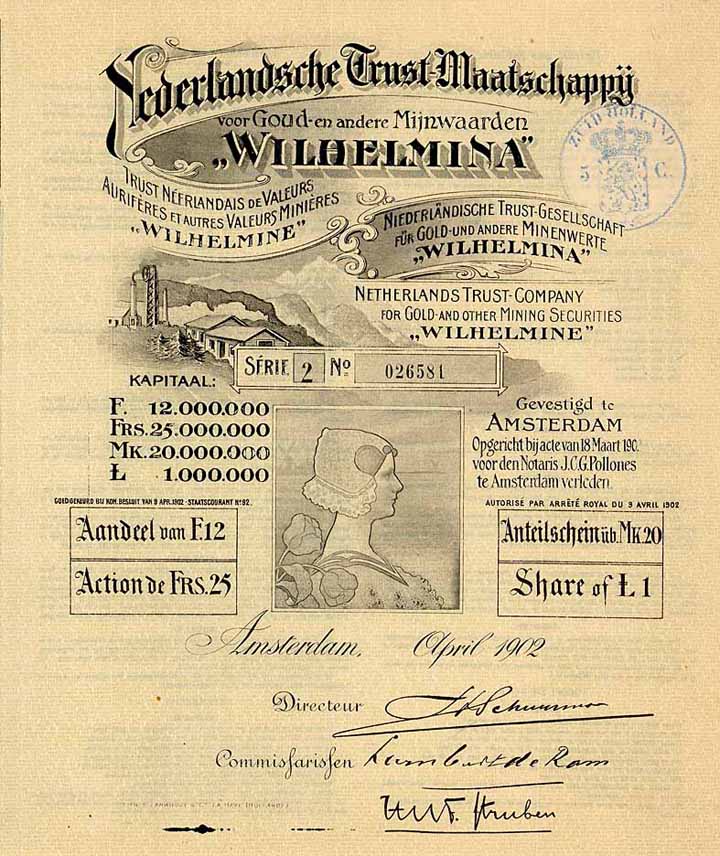 Nederlandsche Trust-Maatschappij
voor Goud- en andere Mijnwaarden
„WILHELMINA”
ZUID HOLLAND
5 C.
TRUST NÉERLANDAIS DE VALEURS
AURIFÈRES ET AUTRES VALEURS MINIÈRES
„WILHELMINE”
NIEDERLÄNDISCHE TRUST-GESELLSCHAFT
FÜR GOLD- UND ANDERE MINENWERTE
„WILHELMINA”
NETHERLANDS TRUST-COMPANY
FOR GOLD- AND OTHER MINING SECURITIES
„WILHELMINE”
SÉRIE 2 No 026581
KAPITAAL:
F. 12.000.000
FRS. 25.000.000
MK. 20.000.000
Ł 1.000.000
Gevestigd te
AMSTERDAM
Opgericht bij acte van 18 Maart 190.
voor den Notaris J.C.G. Pollones
te Amsterdam verleden.
GOEDGEKEURD BIJ KON. BESLUIT VAN 9 APR. 1902 - STAATSCOURANT No 92.
AUTORISÉ PAR ARRÊTÉ ROYAL DU 9 AVRIL 1902
Aandeel van F. 12
Action de FRS. 25
Anteilschein üb. MK. 20
Share of Ł 1
Amsterdam, April 1902
Directeur
Commissarissen
de Ram
Struben
LA HAYE (HOLLANDE)